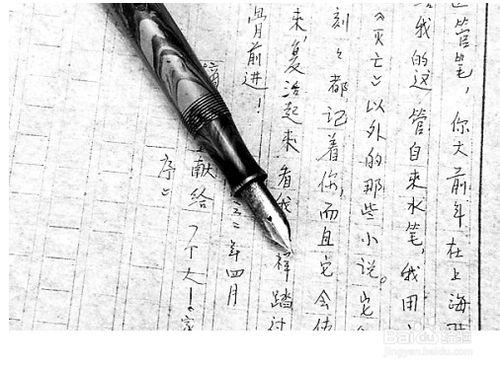 管笔，你大前年在上海
我的这管自来水笔，我用
《灭亡》以外的那些小说。它
刻々都记着你，而且它会
来，复活起来看我样踏过
骨前进！
二年四月
献给个人！
序
Bai 经验
jingyan.baidu.com